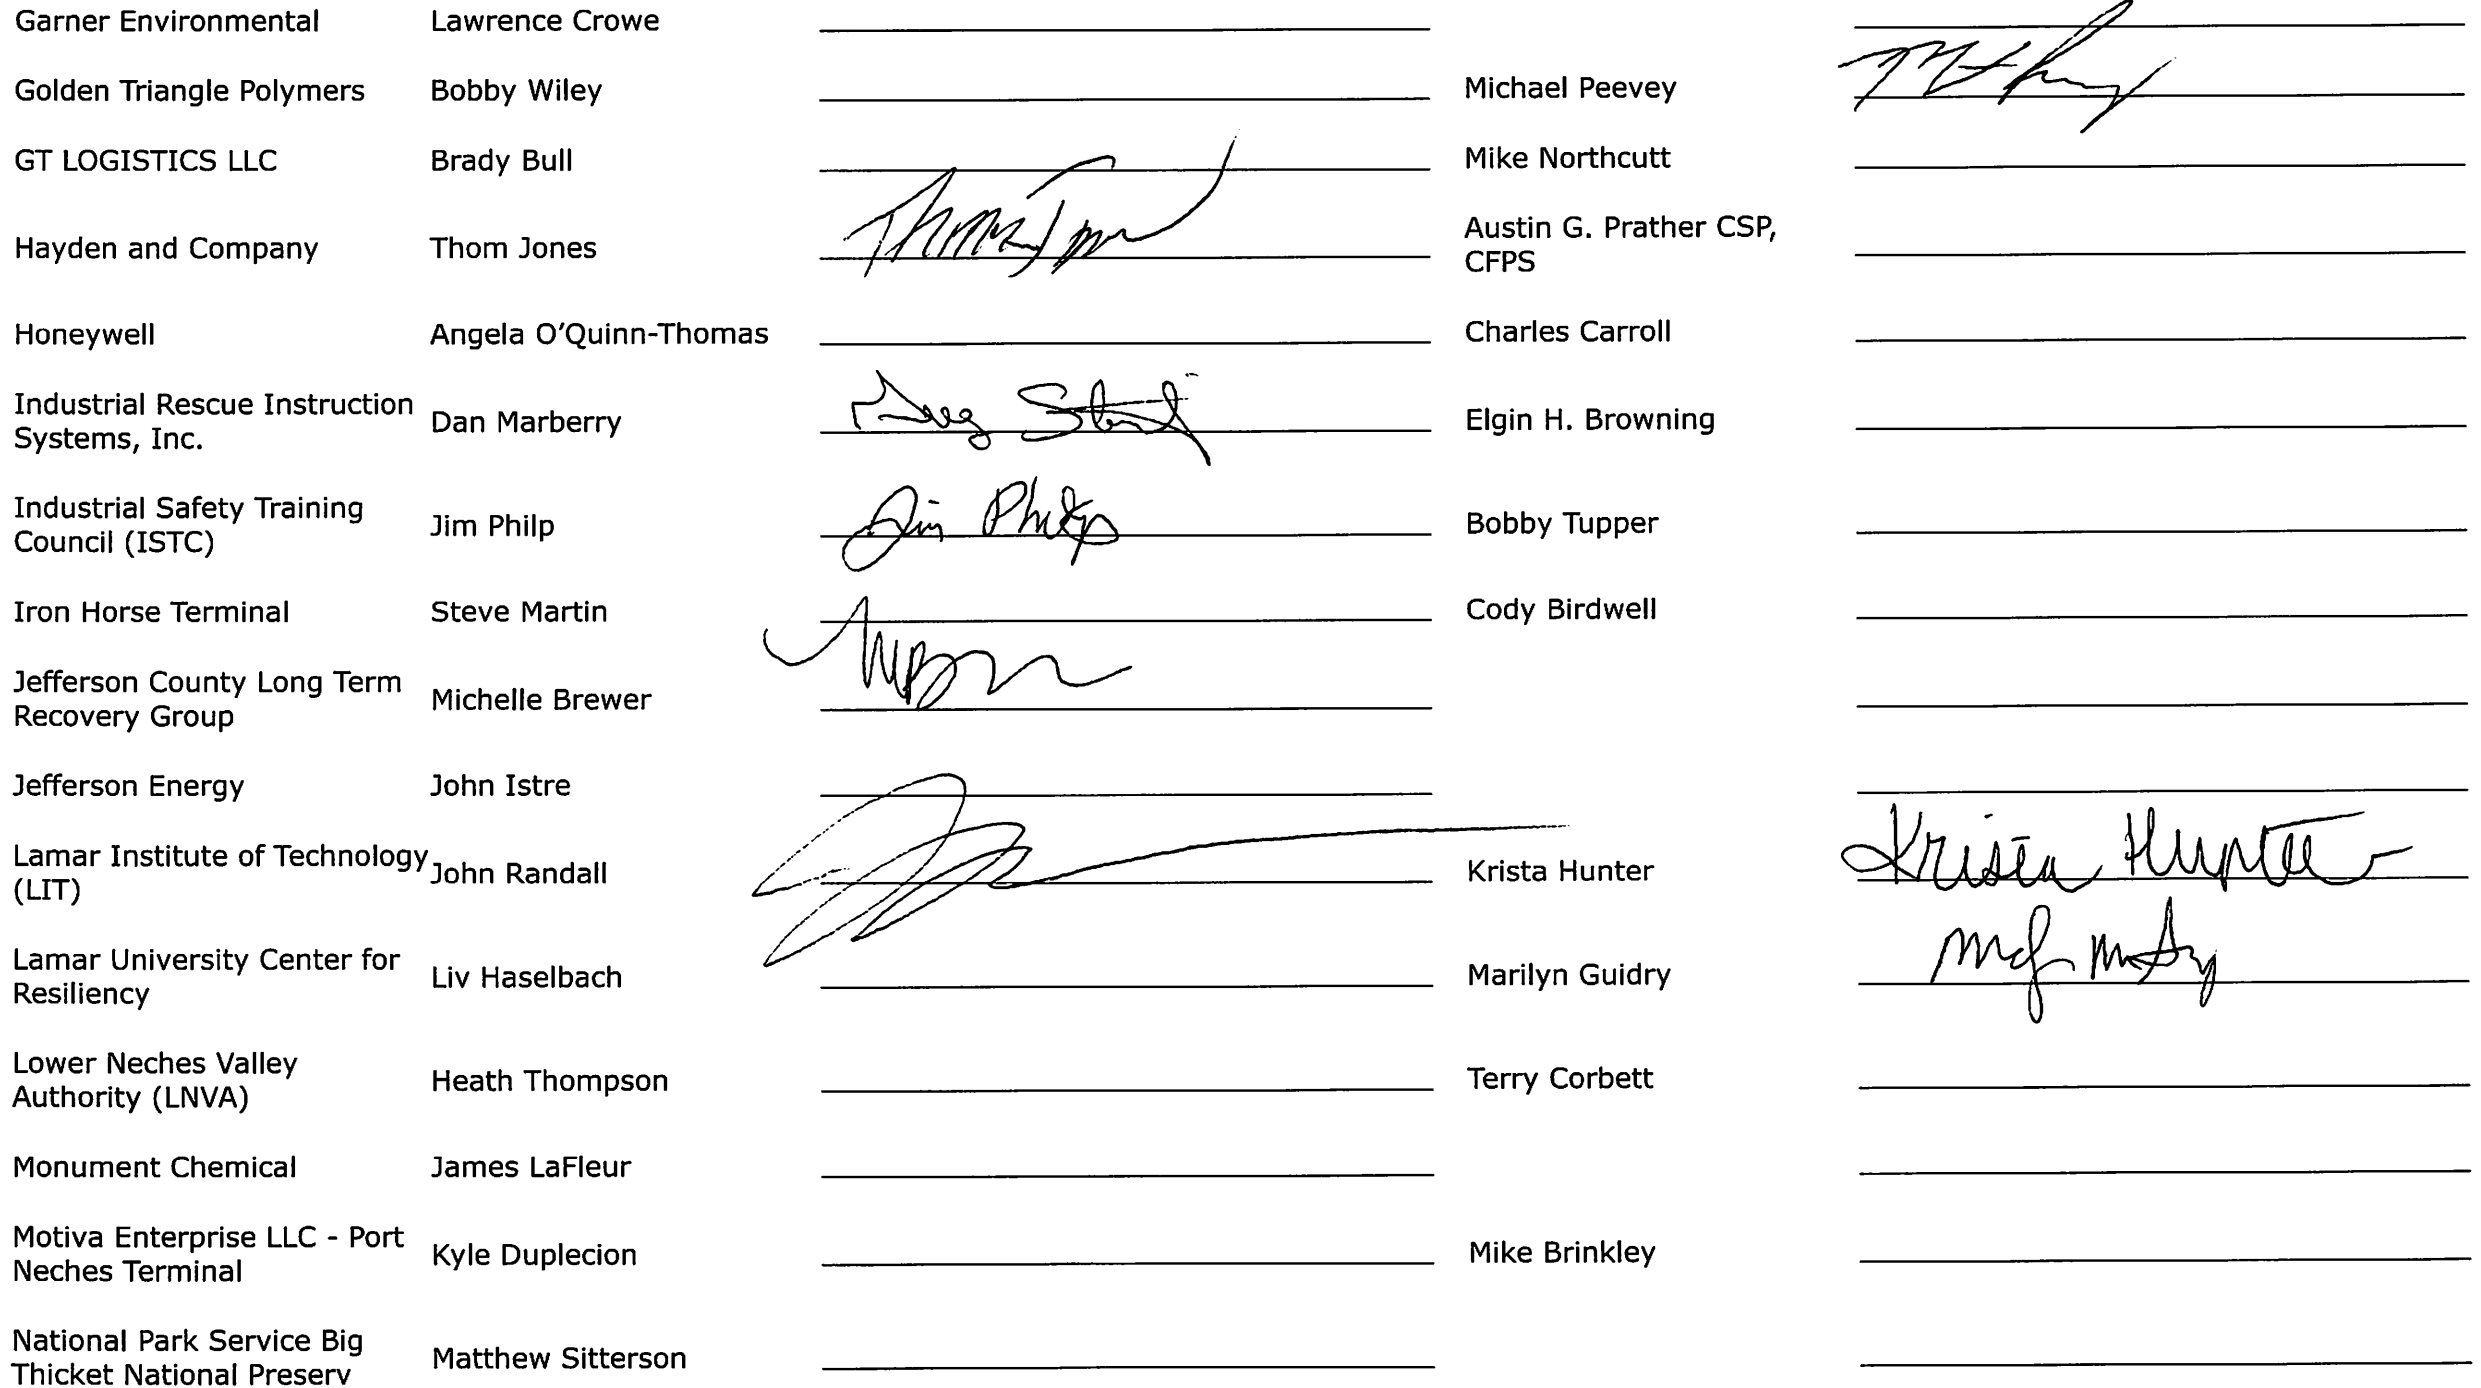 Garner Environmental Lawrence Crowe
Golden Triangle Polymers Bobby Wiley Michael Peevey
GT LOGISTICS LLC Brady Bull Mike Northcutt
Hayden and Company Thom Jones Austin G. Prather CSP,
CFPS
Honeywell Angela O'Quinn-Thomas Charles Carroll
Industrial Rescue Instruction
Systems, Inc. Dan Marberry Elgin H. Browning
Industrial Safety Training
Council (ISTC) Jim Philp Jim Philp Bobby Tupper
Iron Horse Terminal Steve Martin Cody Birdwell
Jefferson County Long Term
Recovery Group Michelle Brewer
Jefferson Energy John Istre
Lamar Institute of Technology
(LIT) John Randall Krista Hunter Krista Hunter
Lamar University Center for
Resiliency Liv Haselbach Marilyn Guidry
Lower Neches Valley
Authority (LNVA) Heath Thompson Terry Corbett
Monument Chemical James LaFleur
Motiva Enterprise LLC - Port
Neches Terminal Kyle Duplecion Mike Brinkley
National Park Service Big
Thicket National Preserv Matthew Sitterson